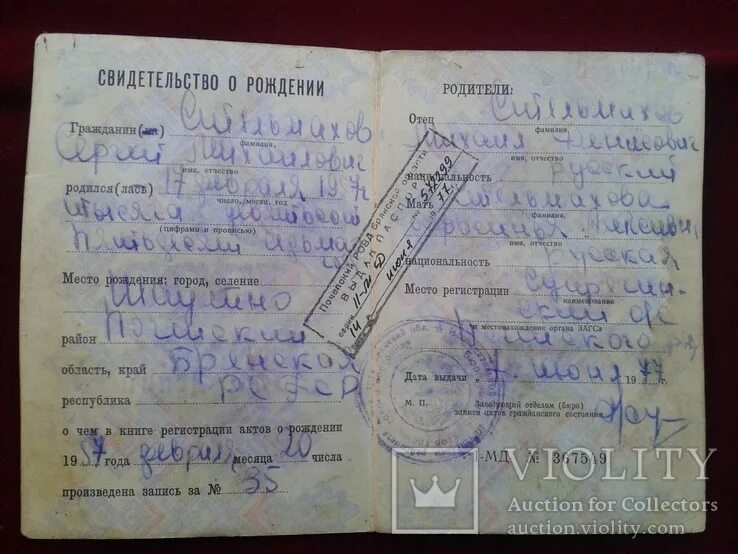 СВИДЕТЕЛЬСТВО О РОЖДЕНИИ
Гражданин(ка) Стельмахов
фамилия,
Сергей Михайлович
имя, отчество
родился(лась) 17 февраля 1957г
число, месяц, год
тысяча девятьсот
(цифрами и прописью)
пятьдесят седьмого
Место рождения: город, селение
район Почепский
область, край Брянская
республика РСФСР
о чем в книге регистрации актов о рождении
1957 года февраля месяца 20 числа
произведена запись за № 35
РОДИТЕЛИ:
Отец Стельмахов
фамилия,
Михаил Денисович
имя, отчество
национальность русский
Мать Стельмахова
фамилия,
имя, отчество
национальность русская
Место регистрации
наименование
и местонахождение органа ЗАГСа
Дата выдачи 7 июня 1977 г.
М. П.
Заведующий отделом (бюро)
записи актов гражданского состояния
-МД № 367549
Почепский РОВД Брянской области
ВЫДАН ПАСПОРТ
серия II-МД № 572299
14 июня 1977.
VIOLITY
Auction for Collectors
auction.violity.com